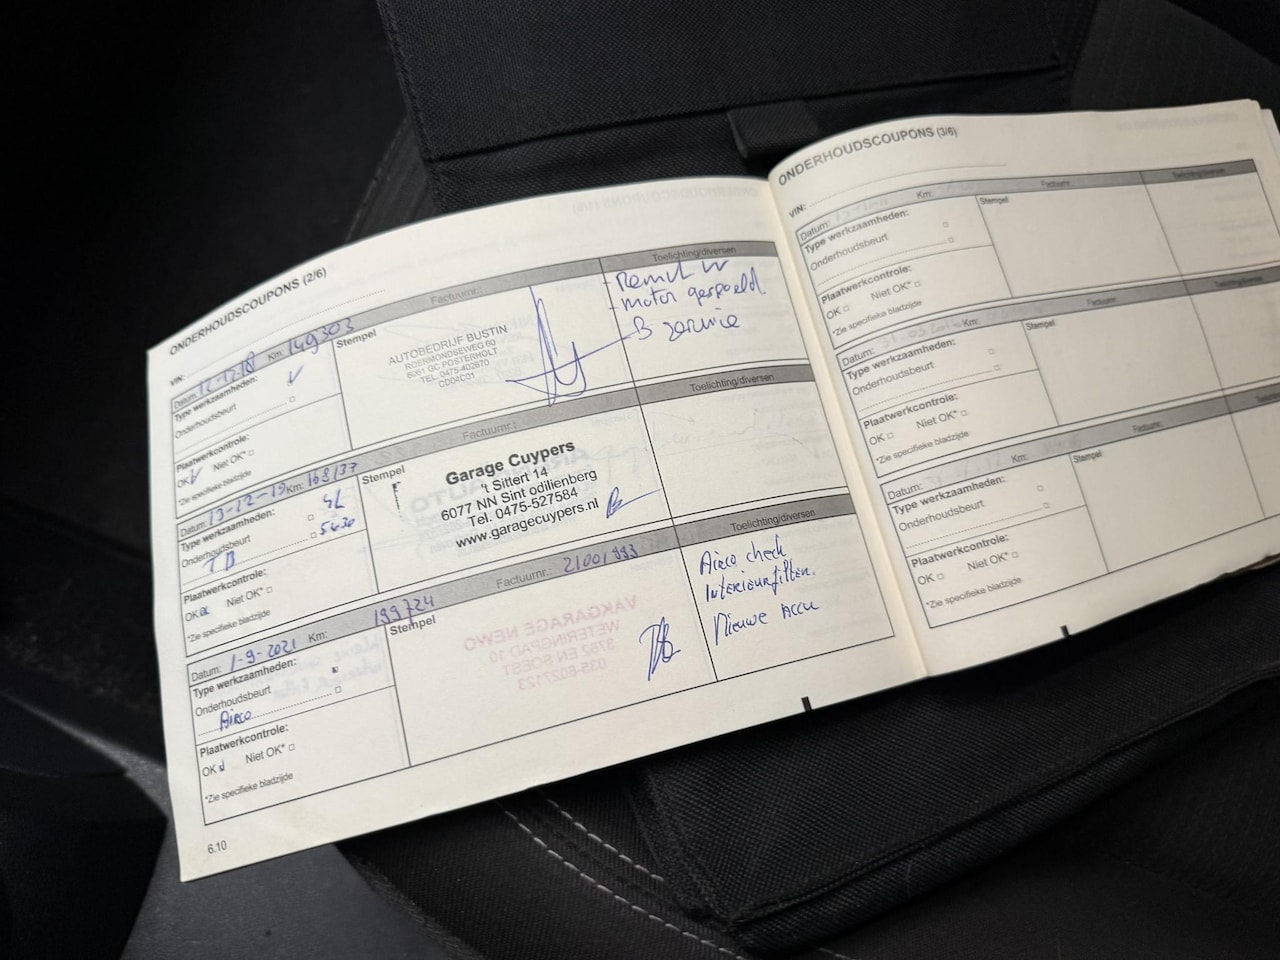 ONDERHOUDSCOUPONS (2/6)
VIN:
Datum: Km: 149303 Factuurnr.: Toelichting/diversen
Type werkzaamheden:
Onderhoudsbeurt
Plaatwerkcontrole:
OK Niet OK*
*Zie specifieke bladzijde
Stempel
AUTOBEDRIJF BUSTIN
ROERMONDSEWEG 60
6061 GC POSTERHOLT
TEL. 0475-402670
CD04C01
- motor gespoeld.
- B service
Datum: 13-12-19 Km: 168137 Factuurnr.: Toelichting/diversen
Type werkzaamheden: 4L
Onderhoudsbeurt 5W30
Plaatwerkcontrole:
OK Niet OK*
*Zie specifieke bladzijde
Stempel
Garage Cuypers
't Sittert 14
6077 NN Sint odilienberg
Tel. 0475-527584
www.garagecuypers.nl
Datum: 1-9-2021 Km: 199724 Factuurnr.: 21001993 Toelichting/diversen
Type werkzaamheden:
Onderhoudsbeurt
Airco
Plaatwerkcontrole:
OK Niet OK*
*Zie specifieke bladzijde
Stempel
VAKGARAGE NEWO
WETERINGPAD 10
3762 EN SOEST
035-6027123
Airco check
Interieurfilter.
Nieuwe Accu
6.10
ONDERHOUDSCOUPONS (3/6)
VIN:
Datum: Km: Factuurnr.: Toelichting/diversen
Type werkzaamheden:
Onderhoudsbeurt
Plaatwerkcontrole:
OK Niet OK*
*Zie specifieke bladzijde
Stempel
Datum: Km: Factuurnr.:
Type werkzaamheden:
Onderhoudsbeurt
Plaatwerkcontrole:
OK Niet OK*
*Zie specifieke bladzijde
Stempel
Datum: Km: Factuurnr.:
Type werkzaamheden:
Onderhoudsbeurt
Plaatwerkcontrole:
OK Niet OK*
*Zie specifieke bladzijde
Stempel